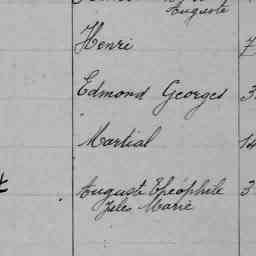 Auguste
Henri 7
Edmond Georges 3
Martial 14
Auguste Théophile 3
Jules Marie